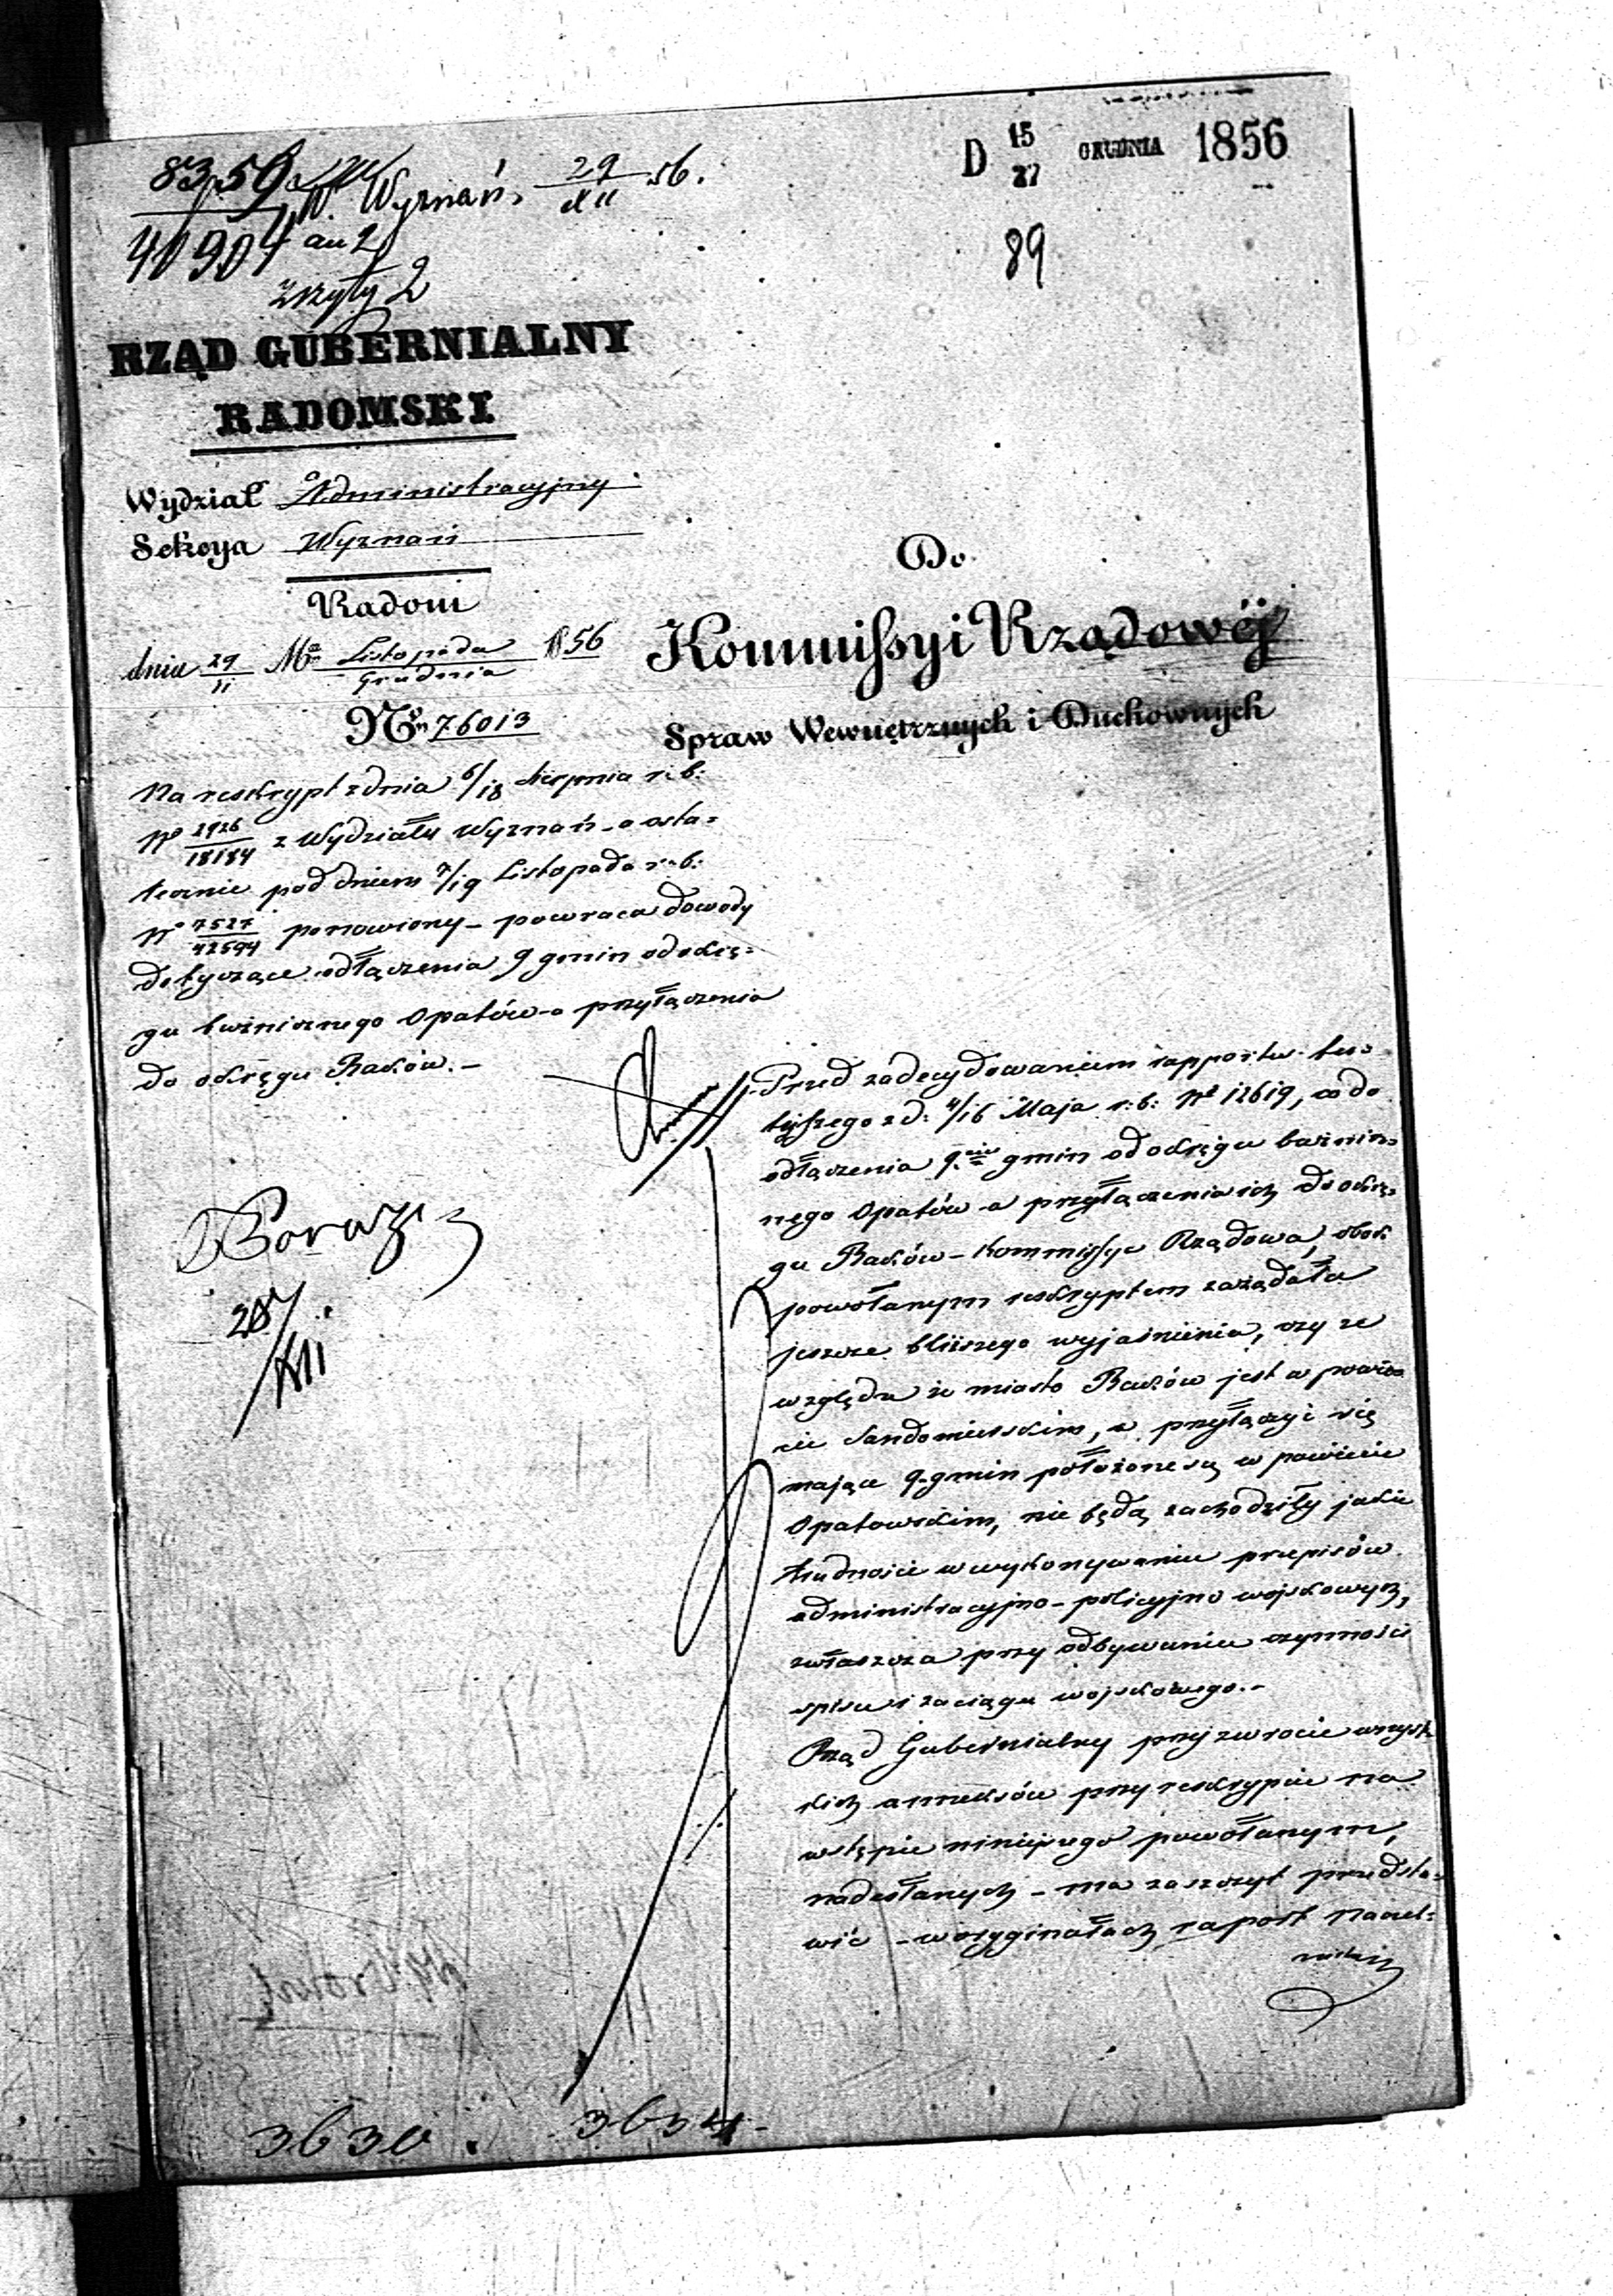 D 15/27 GRUDNIA 1856
W. Wyznań 29/XII 56.
40904 au 2
zszyty 2
89
RZĄD GUBERNIALNY
RADOMSKI
Wydział Administracyjny
Sekcya Wyznań
Radom
dnia 29/11 Mca Listopada/Grudnia 1856
Nr 76013
Do
Kommissyi Rządowéj
Spraw Wewnętrznych i Duchownych
Na reskrypt z dnia 6/18 Sierpnia r: b:
No 2926/18184 z Wydziału Wyznań - a osta=
tecznie pod dniem 7/19 Listopada r: b:
No 7527/42594 ponowiony - powraca dowody
dotyczące odłączenia 9 gmin od okrę=
gu bużnicznego Opatów - a przyłączenia
do okręgu Raków. -
Przed zadecydowaniem rapportu tu=
tejszego z d: 4/16 Maja r: b: No 12619, co do
odłączenia 9ciu gmin od okręgu bużnicz=
nego Opatów - a przyłączenia ich do okrę=
gu Raków - Kommissya Rządowa, obok
powołanym reskryptem zażądała
jeszcze bliższego wyjaśnienia, czy ze
względu że miasto Raków jest w powie=
cie Sandomierskim, a przyłączyć się
mające 9 gmin położone są w powiecie
Opatowskim, nie będą zachodziły jakie
trudności w wykonywaniu przepisów
administracyjno - policyjno wojskowych,
zwłaszcza przy odbywaniu czynności
spisu i zaciągu wojskowego. -
Rząd Gubernialny przy zwrocie wszyst=
kich annexów przy reskrypcie na
wstępie niniejszego powołanym,
nadesłanych - ma zaszczyt przedsta=
wić - w oryginałach raport Naczel=
ników
28/XII
3630. 3634